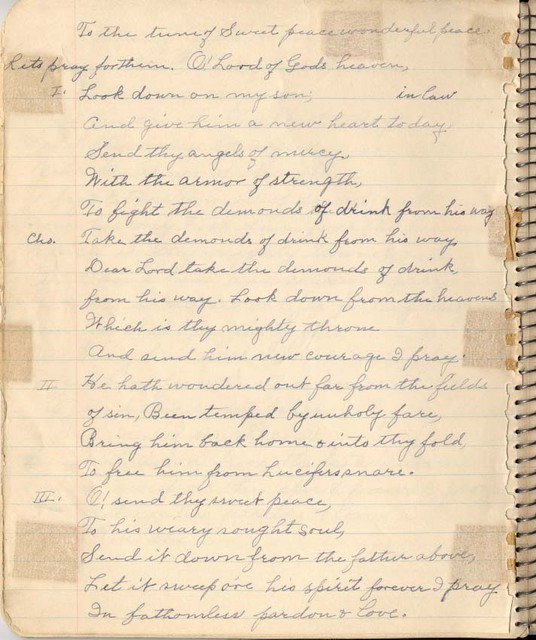 To the tune of Sweet peace wonderful peace.
Lets pray for them. O! Lord of Gods heaven,
I. Look down on my son; in law
And give him a new heart today,
Send thy angels of mercy,
With the armor of strength,
To fight the demonds of drink from his way
Cho. Take the demonds of drink from his way,
Dear Lord take the demonds of drink,
from his way. Look down from the heavens
Which is thy mighty throne
And send him new courage I pray.
II He hath wondered out far from the fields
of sin, Been temped by unholy fare,
Bring him back home & into thy fold,
To free him from Lucifers snare.
III. O! send thy sweet peace,
To his weary sought soul,
Send it down from the father above,
Let it sweep o're his spirit forever I pray
In fathomless pardon & love.